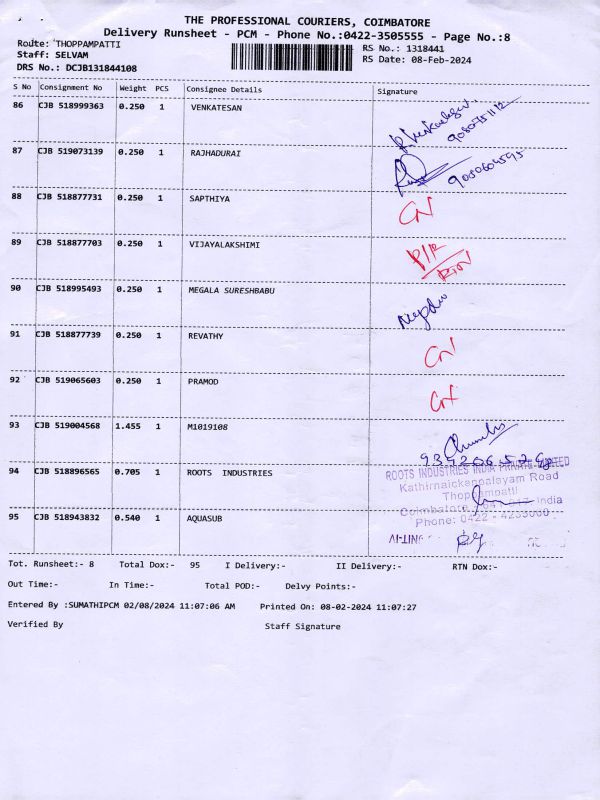 THE PROFESSIONAL COURIERS, COIMBATORE
Delivery Runsheet - PCM - Phone No.:0422-3505555 - Page No.:8
Route: THOPPAMPATTI
RS No.: 1318441
Staff: SELVAM
RS Date: 08-Feb-2024
DRS No.: DCJB131844108
S No Consignment No Weight PCS Consignee Details Signature
86 CJB 518999363 0.250 1 VENKATESAN
87 CJB 519073139 0.250 1 RAJHADURAI
88 CJB 518877731 0.250 1 SAPTHIYA
89 CJB 518877703 0.250 1 VIJAYALAKSHIMI
90 CJB 518995493 0.250 1 MEGALA SURESHBABU
91 CJB 518877739 0.250 1 REVATHY
92 CJB 519065603 0.250 1 PRAMOD
93 CJB 519004568 1.455 1 M1019108
94 CJB 518896565 0.705 1 ROOTS INDUSTRIES
ROOTS INDUSTRIES INDIA PRIVATE LIMITED
Kathirnaickenpalayam Road
Thoppampatti
Coimbatore India
Phone: 0422
95 CJB 518943832 0.540 1 AQUASUB
Tot. Runsheet:- 8 Total Dox:- 95 I Delivery:- II Delivery:- RTN Dox:-
Out Time:- In Time:- Total POD:- Delvy Points:-
Entered By :SUMATHIPCM 02/08/2024 11:07:06 AM Printed On: 08-02-2024 11:07:27
Verified By Staff Signature